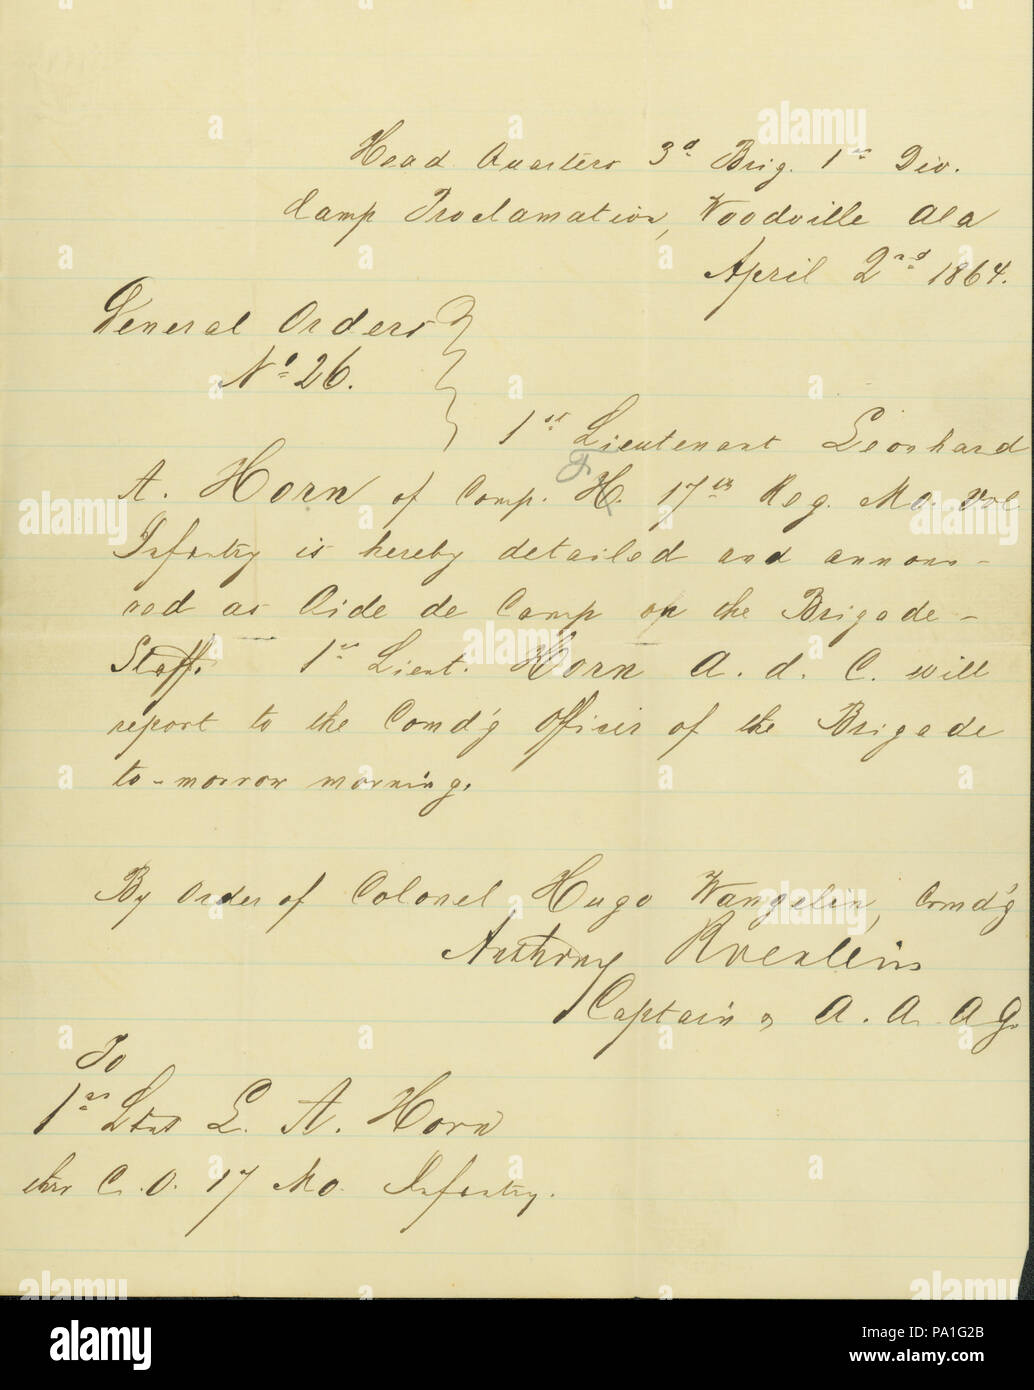 Head Quarters 3d Brig. 1st Div.
Camp Proclamation, Woodville Ala
April 2nd 1864.
General Orders
No 26.
1st Lieutenant Leonhard
F
A. Horn of Comp. H. 17th Reg. Mo. Vol
Infantry is hereby detailed and announ-
ced as Aide de Camp on the Brigade-
Staff. 1st Lieut. Horn A. d. C. will
report to the Comd'g Officer of the Brigade
to-morrow morning.
By order of Colonel Hugo Wangelin, Comd'g
Anthony Roenlein
Captain & A. A. A G.
To
1st Lent L. A. Horn
thro C. O. 17 Mo. Infantry.
alamy
alamy stock photo
PA1G2B
www.alamy.com